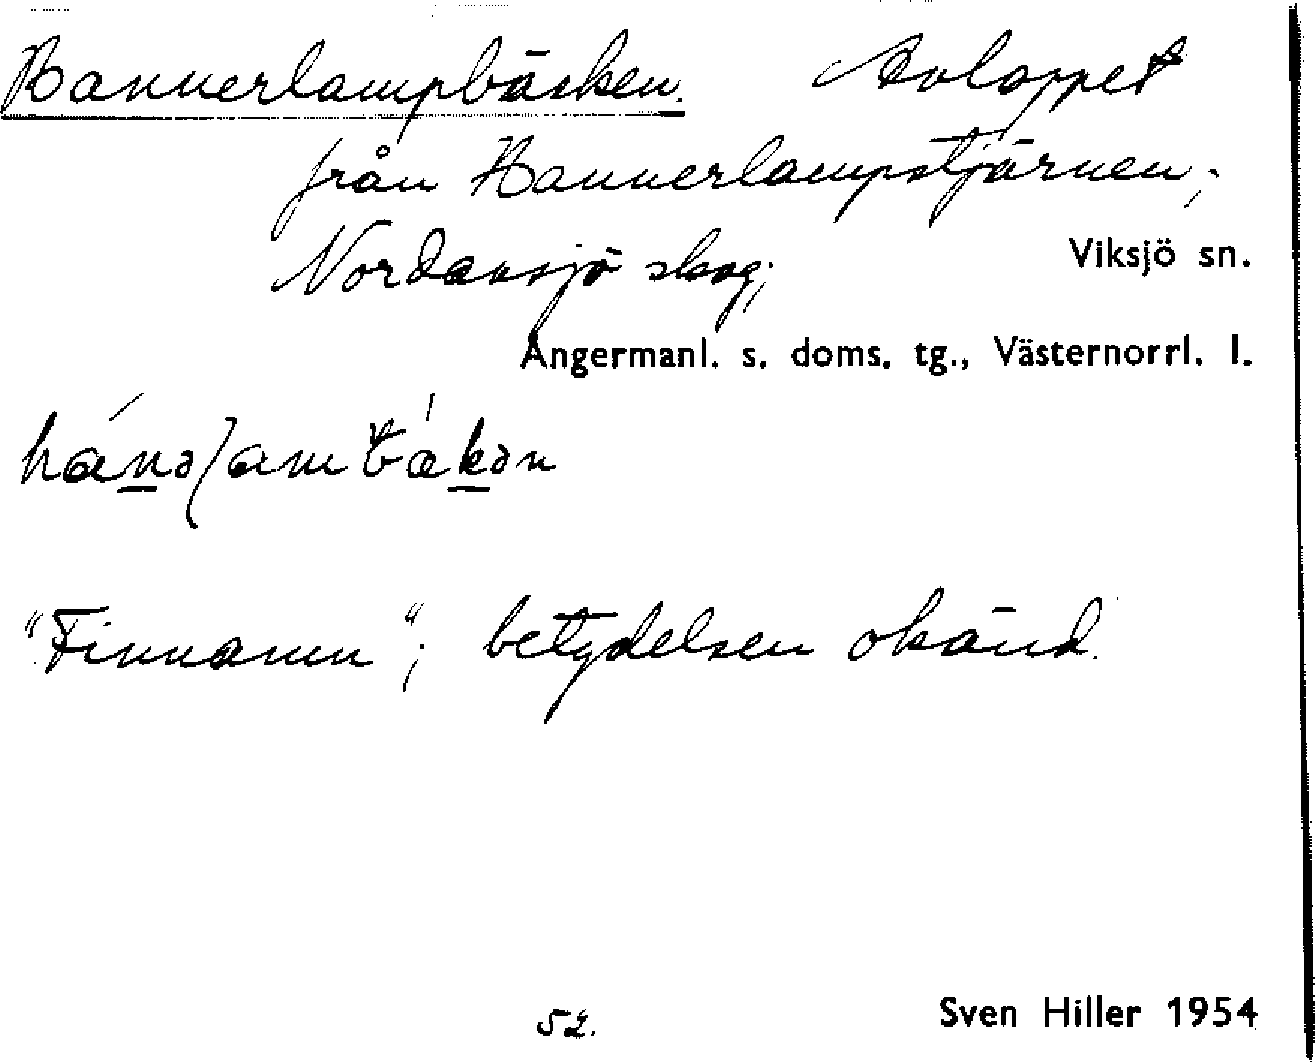 Hannerlampbäcken. Avloppet
från Hannerlampstjärnen;
Nordansjö skog; Viksjö sn.
Ångermanl. s. doms. tg., Västernorrl. l.
"Finnamn"; betydelsen okänd.
52. Sven Hiller 1954